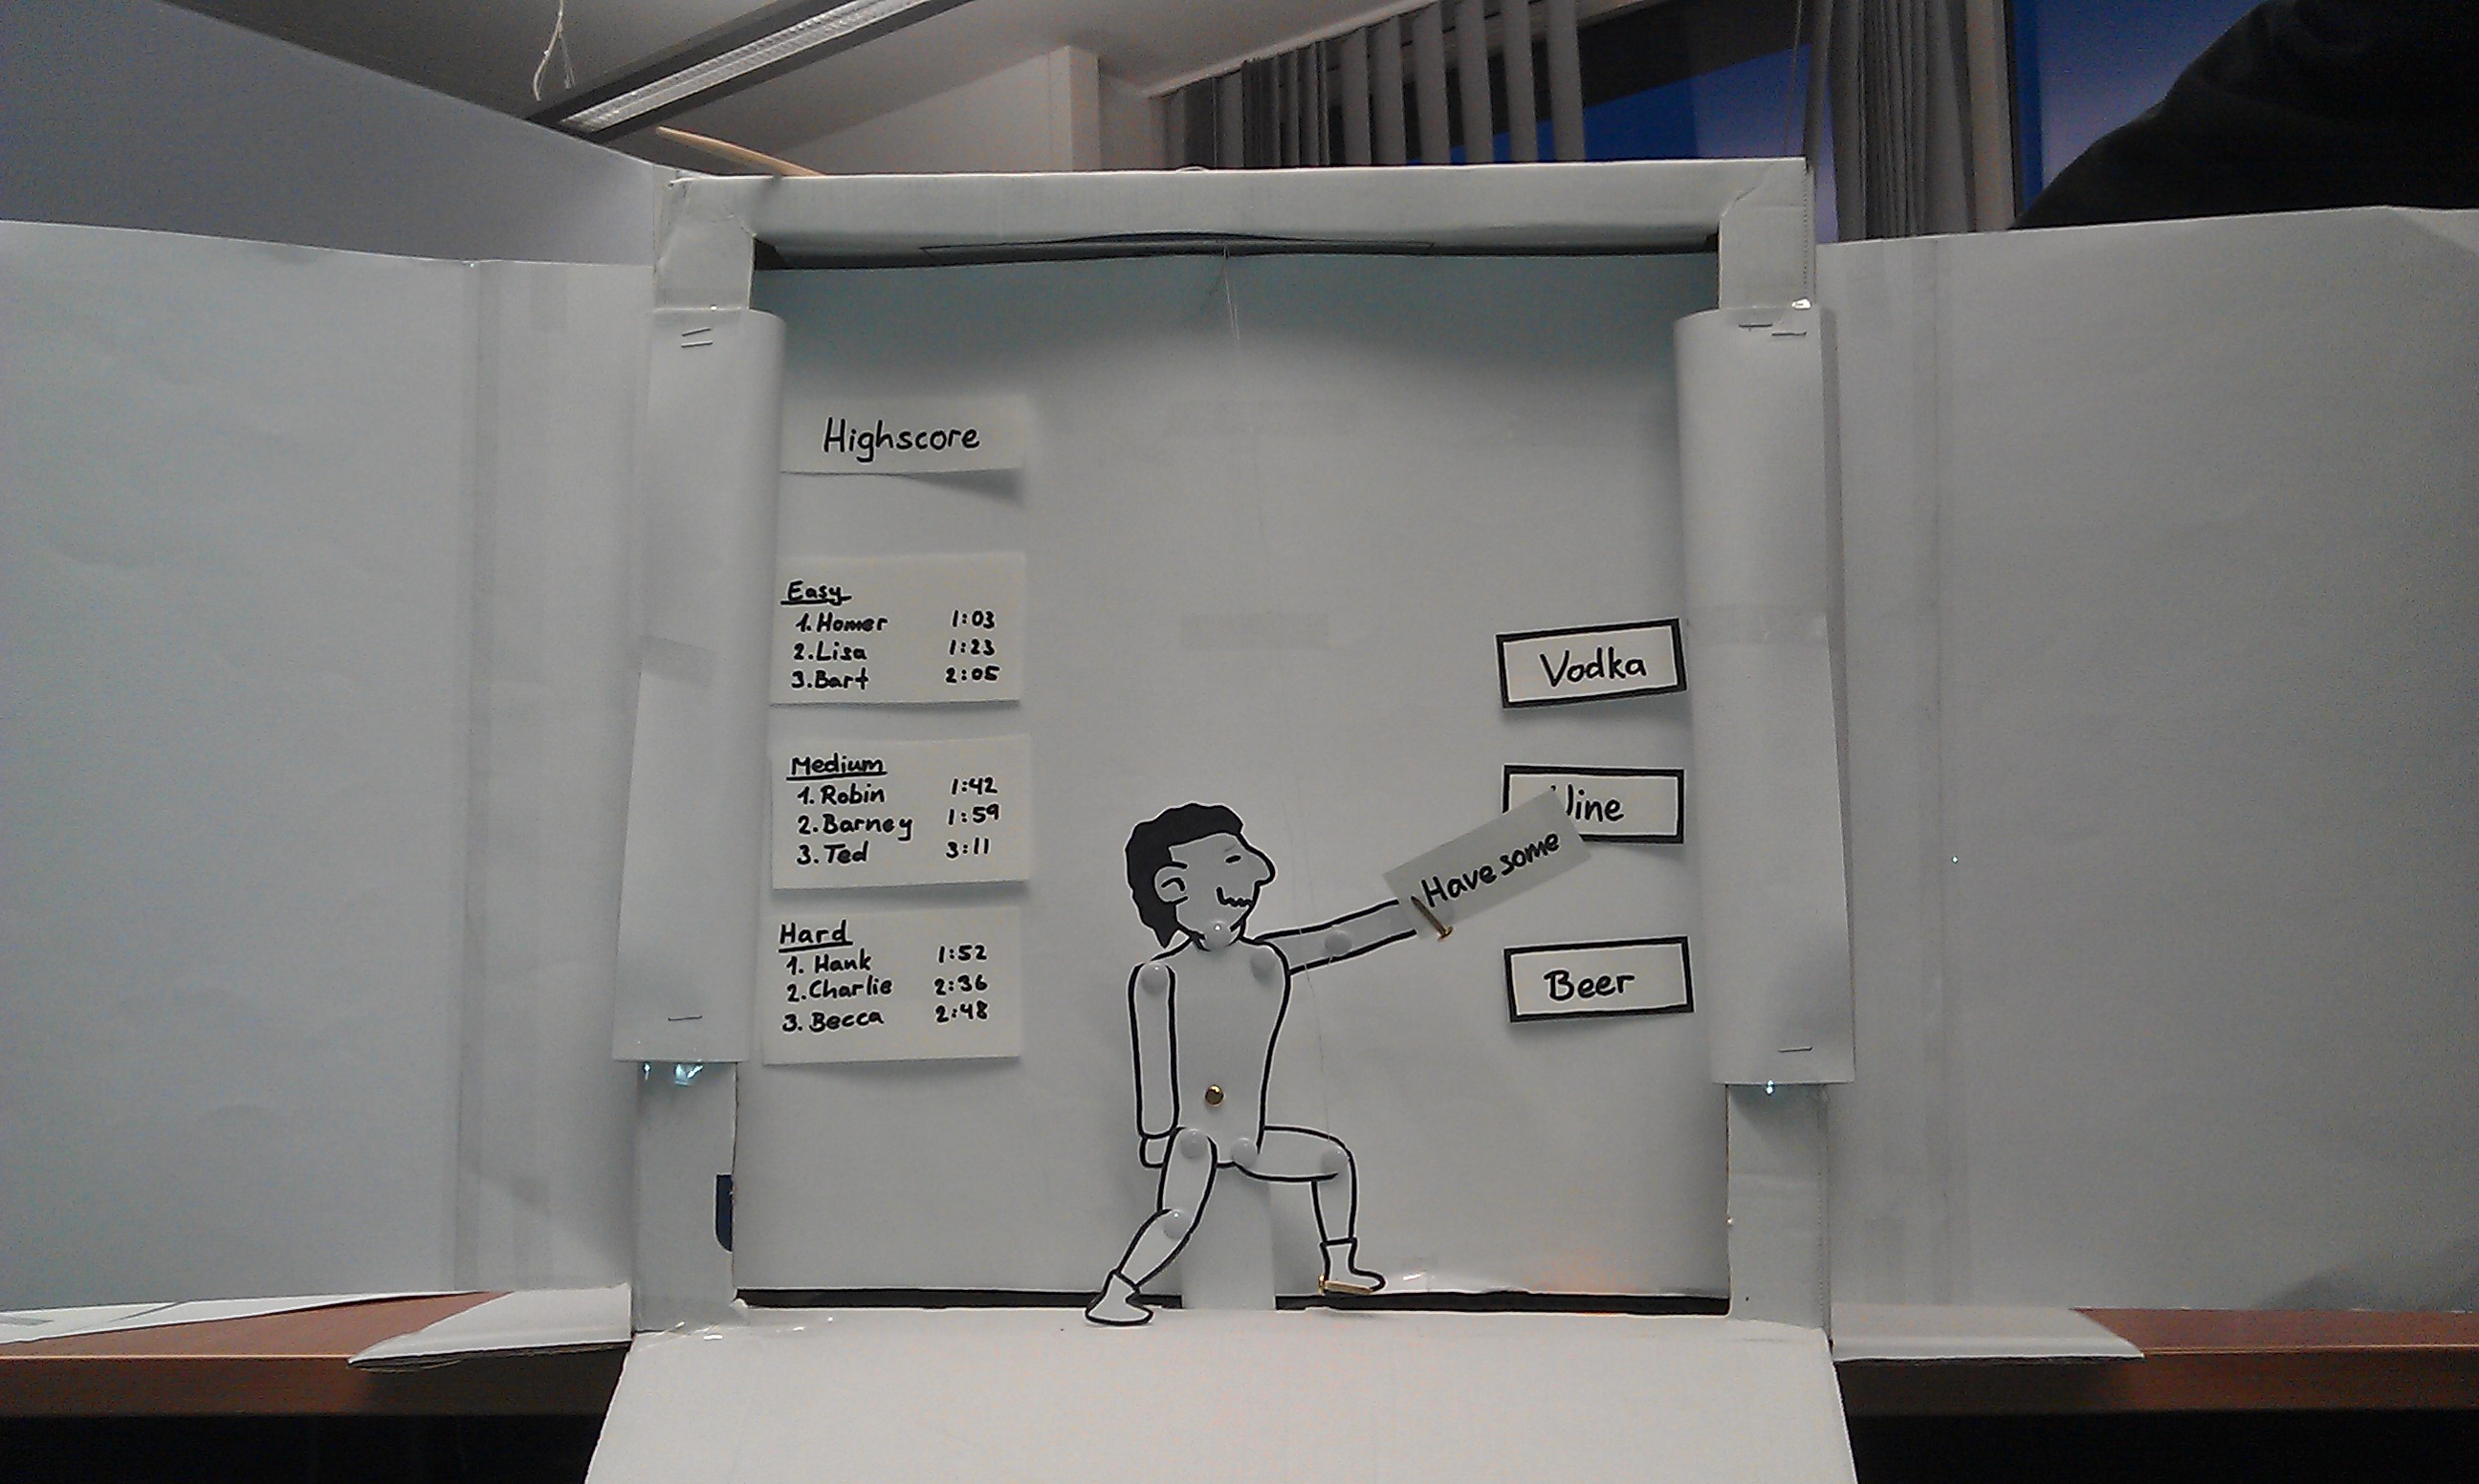 Highscore
Easy
1. Homer 1:03
2. Lisa 1:23
3. Bart 2:05
Medium
1. Robin 1:42
2. Barney 1:59
3. Ted 3:11
Hard
1. Hank 1:52
2. Charlie 2:36
3. Becca 2:48
Vodka
Wine
Have some
Beer